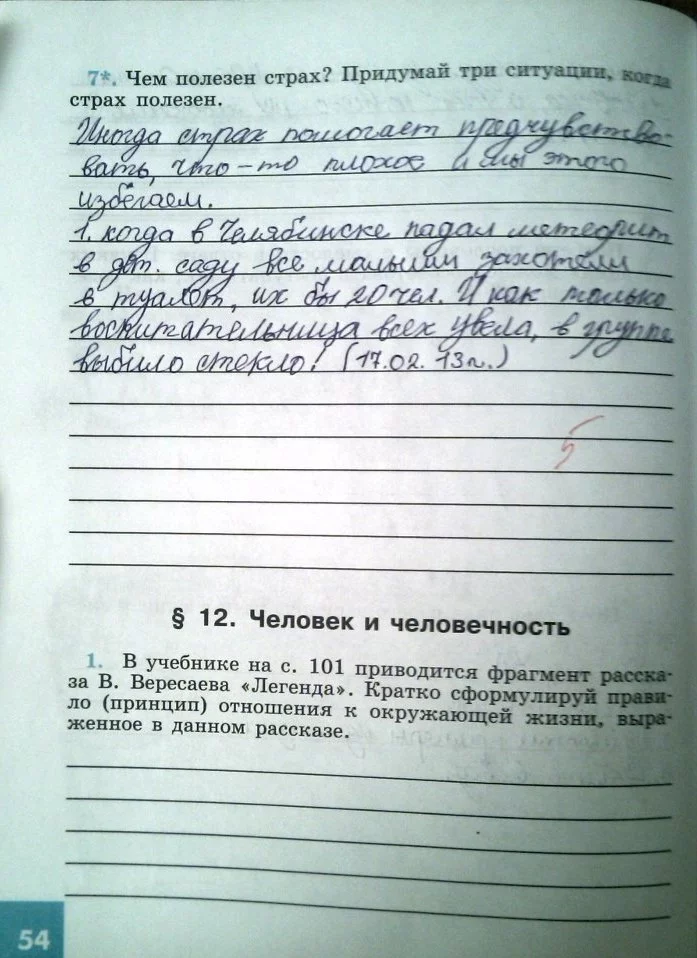 7*. Чем полезен страх? Придумай три ситуации, когда
страх полезен.
Иногда страх помогает предчувство-
вать, что-то плохое и мы этого
избегаем.
1. когда в Челябинске падал метеорит
в дет. саду все малыши захотели
в туалет, их бы 20 чел. И как только
воспитательница всех увела, в группе
выбило стекло! (17.02. 13г.)
5
§ 12. Человек и человечность
1. В учебнике на с. 101 приводится фрагмент расска-
за В. Вересаева «Легенда». Кратко сформулируй прави-
ло (принцип) отношения к окружающей жизни, выра-
женное в данном рассказе.
54